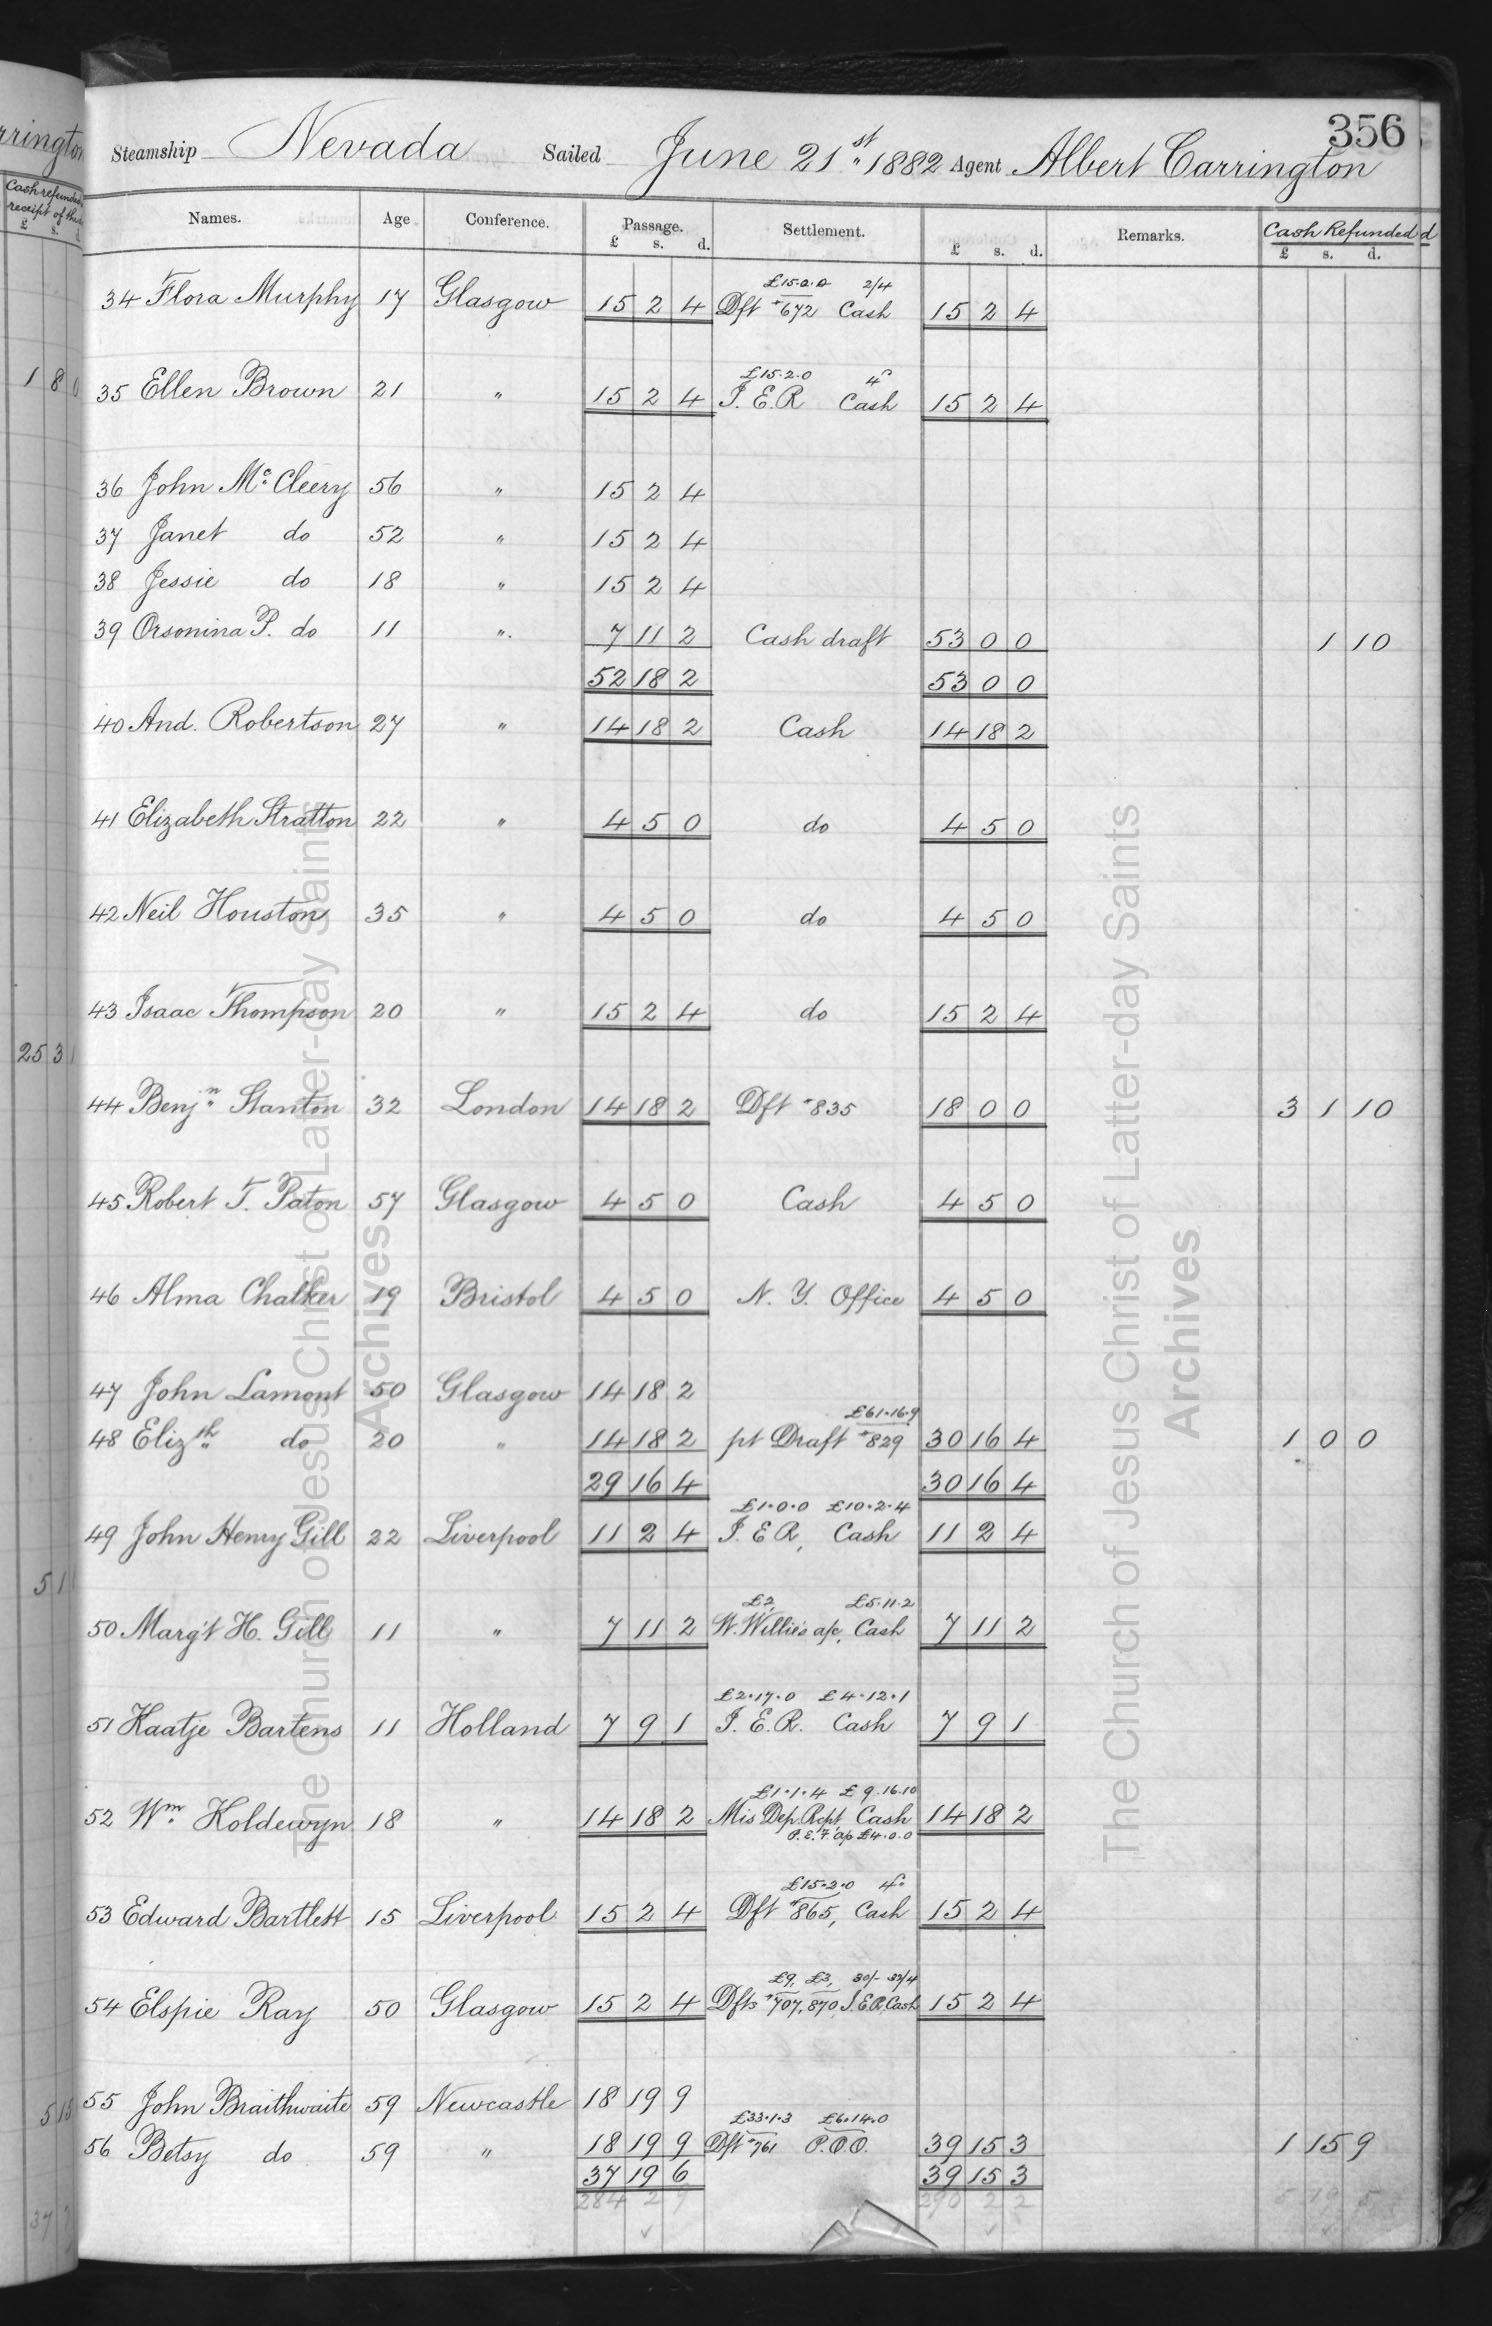 356
Steamship Nevada Sailed June 21st 1882 Agent Albert Carrington
Names. Age Conference. Passage. Settlement. Remarks. Cash Refunded
£ s. d. £ s. d. £ s. d.
£15.0.0 2/4
34 Flora Murphy 17 Glasgow 15 2 4 Dft #672 Cash 15 2 4
£15.2.0 4d
35 Ellen Brown 21 " 15 2 4 I.E.R Cash 15 2 4
36 John McCleery 56 " 15 2 4
37 Janet do 52 " 15 2 4
38 Jessie do 18 " 15 2 4
39 Orsonina P. do 11 " 7 11 2 Cash draft 53 0 0 1 10
52 18 2 53 0 0
40 And. Robertson 27 " 14 18 2 Cash 14 18 2
41 Elizabeth Stratton 22 " 4 5 0 do 4 5 0
42 Neil Houston 35 " 4 5 0 do 4 5 0
43 Isaac Thompson 20 " 15 2 4 do 15 2 4
44 Benjn Stanton 32 London 14 18 2 Dft #835 18 0 0 3 1 10
45 Robert T. Paton 57 Glasgow 4 5 0 Cash 4 5 0
46 Alma Chalker 19 Bristol 4 5 0 N. Y. Office 4 5 0
47 John Lamont 50 Glasgow 14 18 2
£61.16.9
48 Elizth do 20 " 14 18 2 pt Draft #829 30 16 4 1 0 0
29 16 4 30 16 4
£1.0.0 £10.2.4
49 John Henry Gill 22 Liverpool 11 2 4 I.E.R, Cash 11 2 4
£2, £5.11.2
50 Marg't H. Gill 11 " 7 11 2 W. Willie's a/c, Cash 7 11 2
£2.17.0 £4.12.1
51 Kaatje Bartens 11 Holland 7 9 1 I.E.R. Cash 7 9 1
£1.1.4 £9.16.10
52 Wm Koldewyn 18 " 14 18 2 Mis Dep. Rcpt, Cash 14 18 2
P.E.F. a/c £4.0.0
£15.2.0 4d
53 Edward Bartlett 15 Liverpool 15 2 4 Dft #865, Cash 15 2 4
£9, £3, 30/- 32/4
54 Elspie Ray 50 Glasgow 15 2 4 Dfts #707, 870, I.E.R, Cash 15 2 4
55 John Braithwaite 59 Newcastle 18 19 9
£33.1.3 £6.14.0
56 Betsy do 59 " 18 19 9 Dft #761 P.O.O. 39 15 3 1 15 9
37 19 6 39 15 3
284 2 9 290 2 2 5 19 5
The Church of Jesus Christ of Latter-day Saints
Archives
The Church of Jesus Christ of Latter-day Saints
Archives